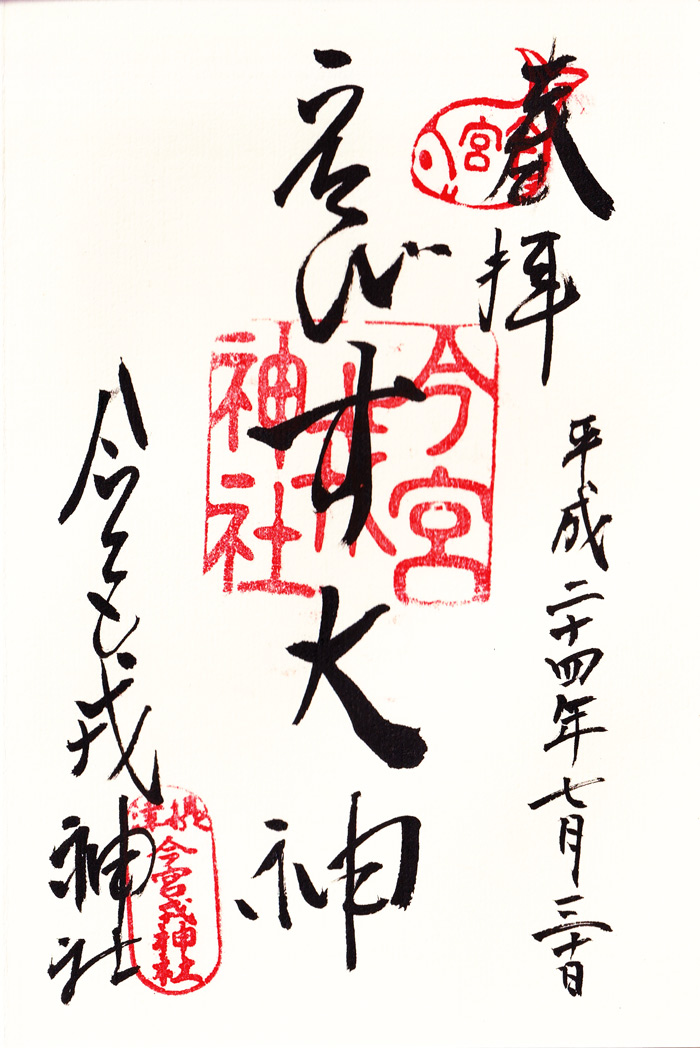 奉拝
今宮
平成二十四年七月三十日
ゑびす大神
今宮戎神社
今宮戎神社
摂津
今宮戎神社